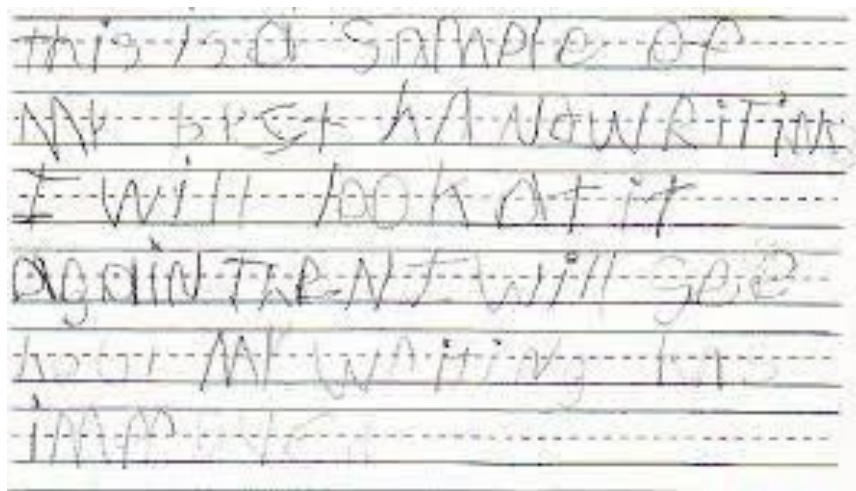 this is a sample of
My best hANdWRiTiNg
I will look at it
again TheN I will see
how My writing has